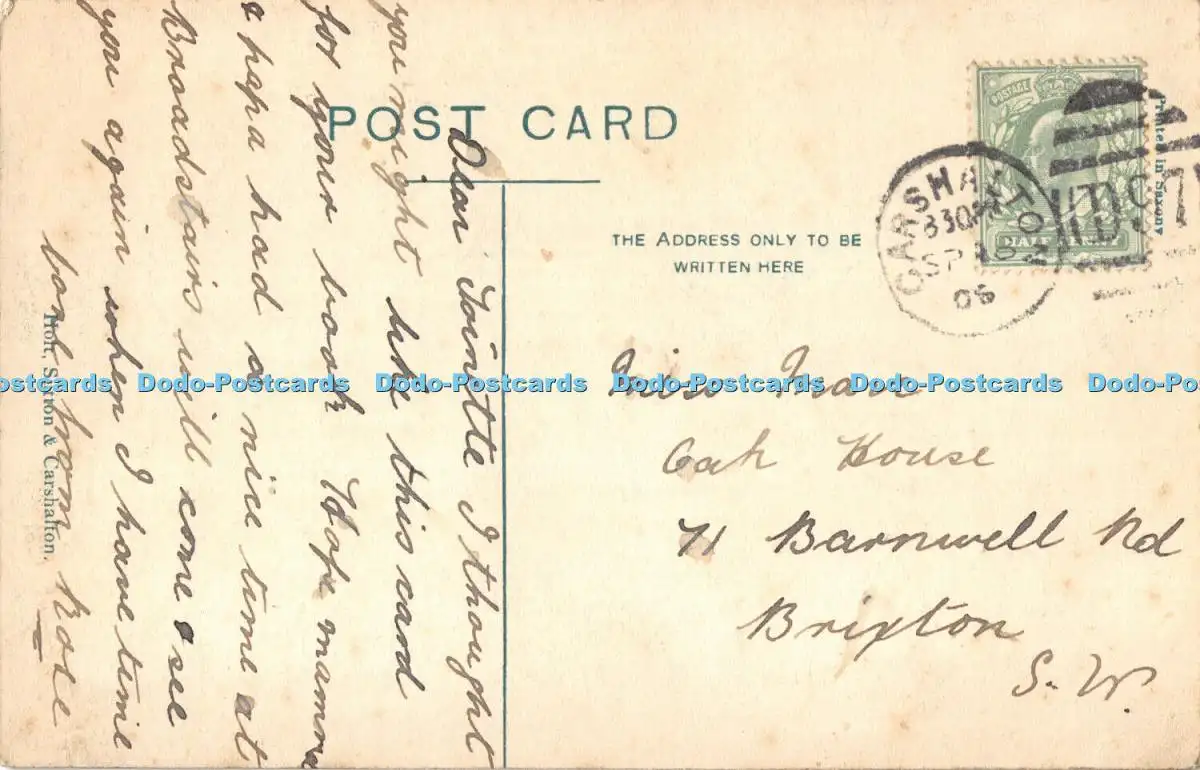 POST CARD
THE ADDRESS ONLY TO BE
WRITTEN HERE
Printed in Saxony
POSTAGE
HALF PENNY
CARSHALTON
830PM
SP 18
06
D97
Dear Tointtle I thought
you might like this card
for your book Hope mamma
& papa had a nice time at
Broadstairs will come & see
you again when I have time
love from Rose
Holt, Sutton & Carshalton.
Miss
Oak House
71 Barnwell Rd
Brixton
S. W.
Dodo-Postcards Dodo-Postcards Dodo-Postcards Dodo-Postcards Dodo-Postcards